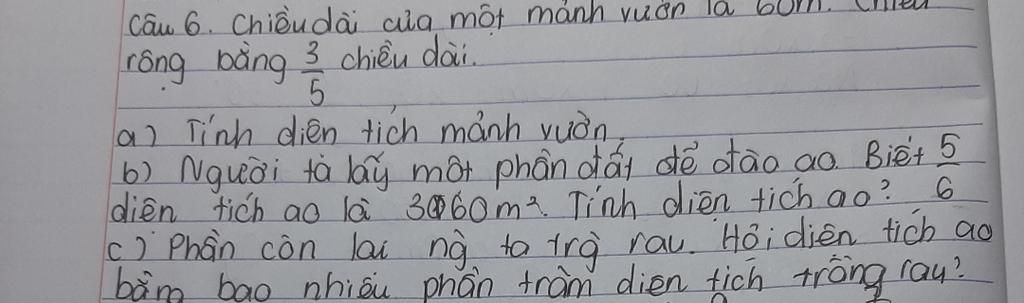 Câu 6. Chiều dài của một mảnh vườn là 60m. Chiều
rộng bằng 3/5 chiều dài.
a) Tính diện tích mảnh vườn.
b) Người ta lấy một phần đất để đào ao. Biết 5/6
diện tích ao là 3060m². Tính diện tích ao?
c) Phần còn lại ng ta trg rau. Hỏi diện tích ao
bằng bao nhiêu phần trăm diện tích trồng rau?